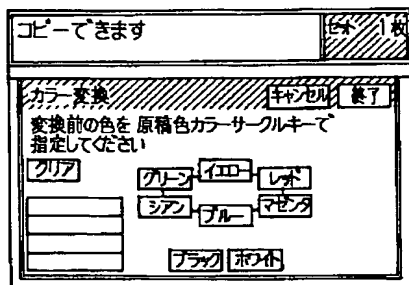 コピーできます
セット 1枚
カラー変換 キャンセル 終了
変換前の色を 原稿色カラーサークルキーで
指定してください
クリア
グリーン イエロー レッド
シアン ブルー マゼンタ
ブラック ホワイト